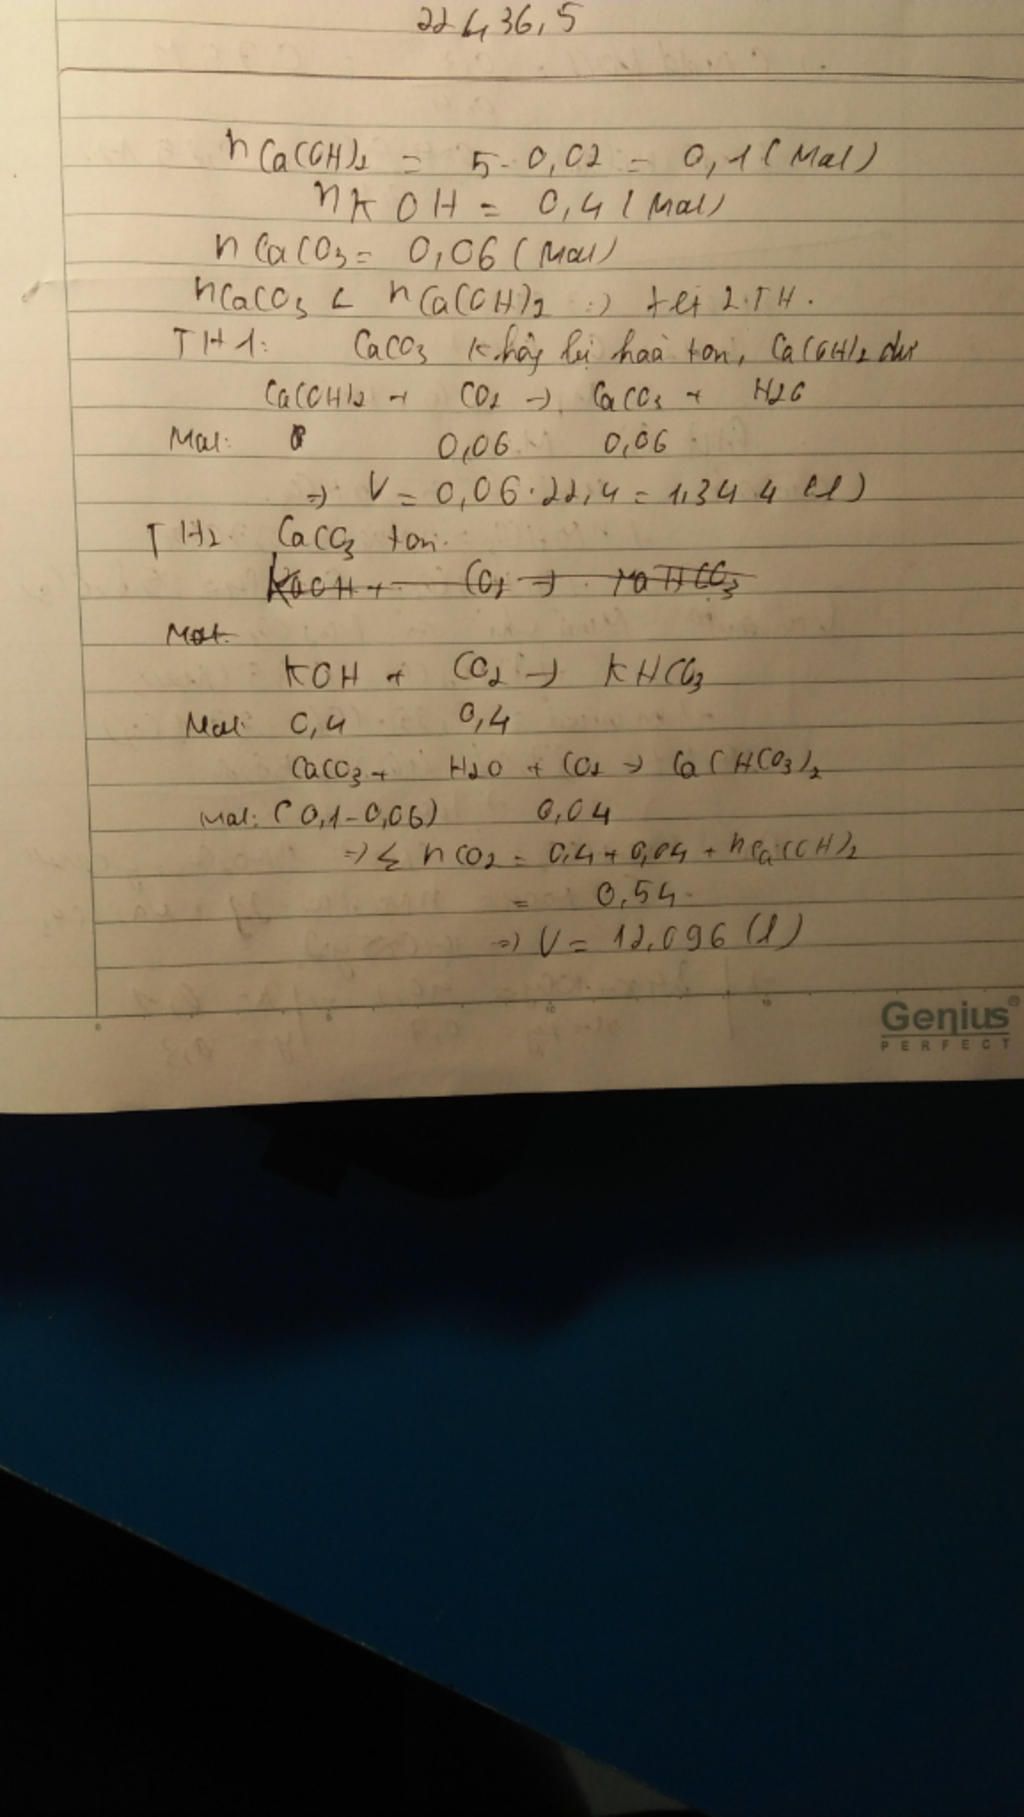 22,4,36,5
nCa(OH)2 = 5.0,02 = 0,1 (Mol)
nKOH = 0,4 (Mol)
nCaCO3 = 0,06 (Mol)
nCaCO3 < nCa(OH)2 => 2 TH.
TH1: CaCO3 không bị hoà tan, Ca(OH)2 dư
Ca(OH)2 + CO2 -> CaCO3 + H2O
Mol: 0,06 0,06
=> V = 0,06.22,4 = 1,344 (l)
TH2. CaCO3 tan.
KOH + CO2 -> KHCO3
Mol: 0,4 0,4
CaCO3 + H2O + CO2 -> Ca(HCO3)2
Mol: (0,1-0,06) 0,04
=> Σ nCO2 = 0,4 + 0,04 + nCa(OH)2
= 0,54.
=> V = 12,096 (l)
Genius
PERFECT